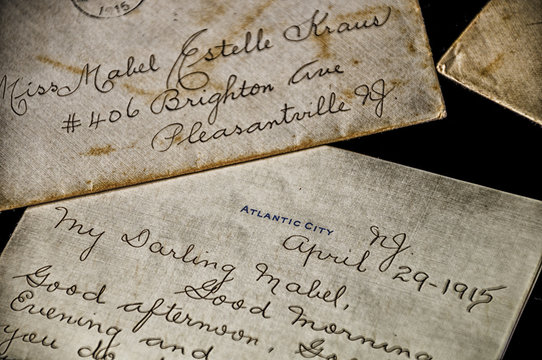 1915
Miss Mabel Estelle Kraus
#406 Brighton Ave
Pleasantville NJ.
ATLANTIC CITY
NJ.
April 29-1915
My Darling Mabel,
Good Morning
Good afternoon, Good
Evening and
you do